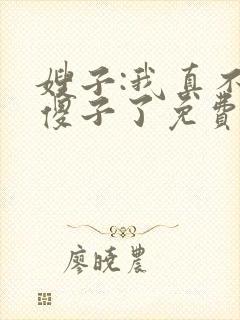 嫂子:我真不
傻子了免费
廖晓農